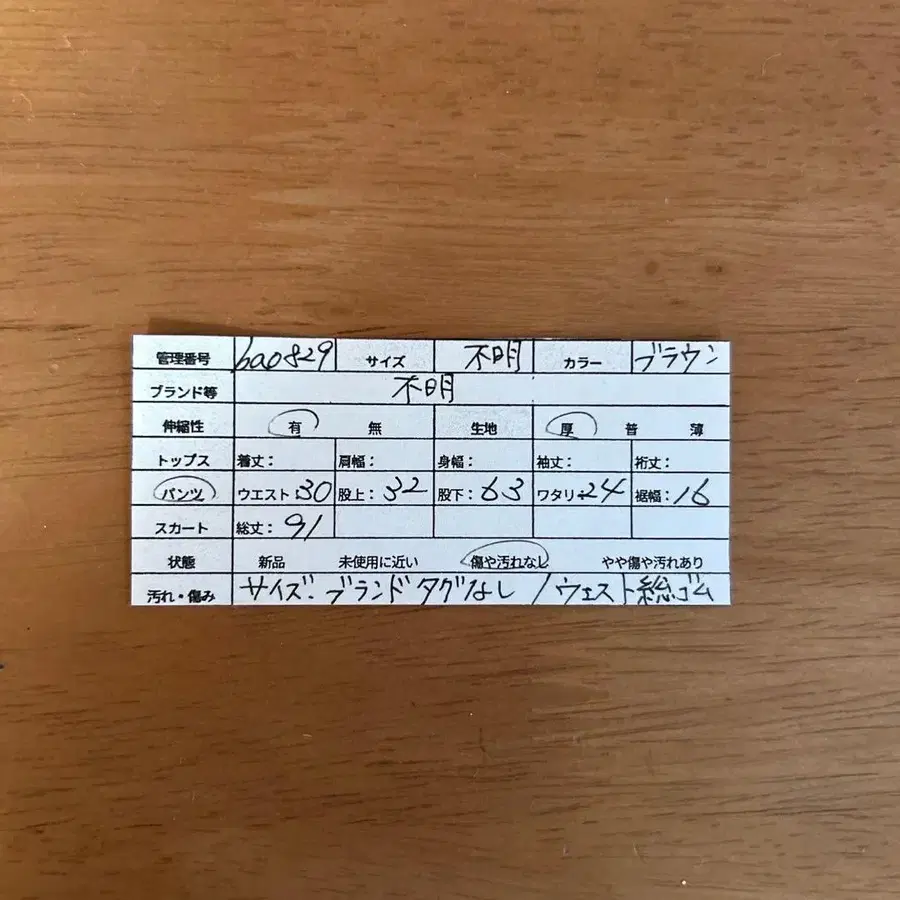 管理番号 bao829 サイズ 不明 カラー ブラウン
ブランド等 不明
伸縮性 有 無 生地 厚 普 薄
トップス 着丈: 肩幅: 身幅: 袖丈: 裄丈:
パンツ ウエスト:30 股上:32 股下:63 ワタリ:24 裾幅:16
スカート 総丈:91
状態 新品 未使用に近い 傷や汚れなし やや傷や汚れあり
汚れ・傷み サイズ.ブランドタグなし/ウェスト総ゴム